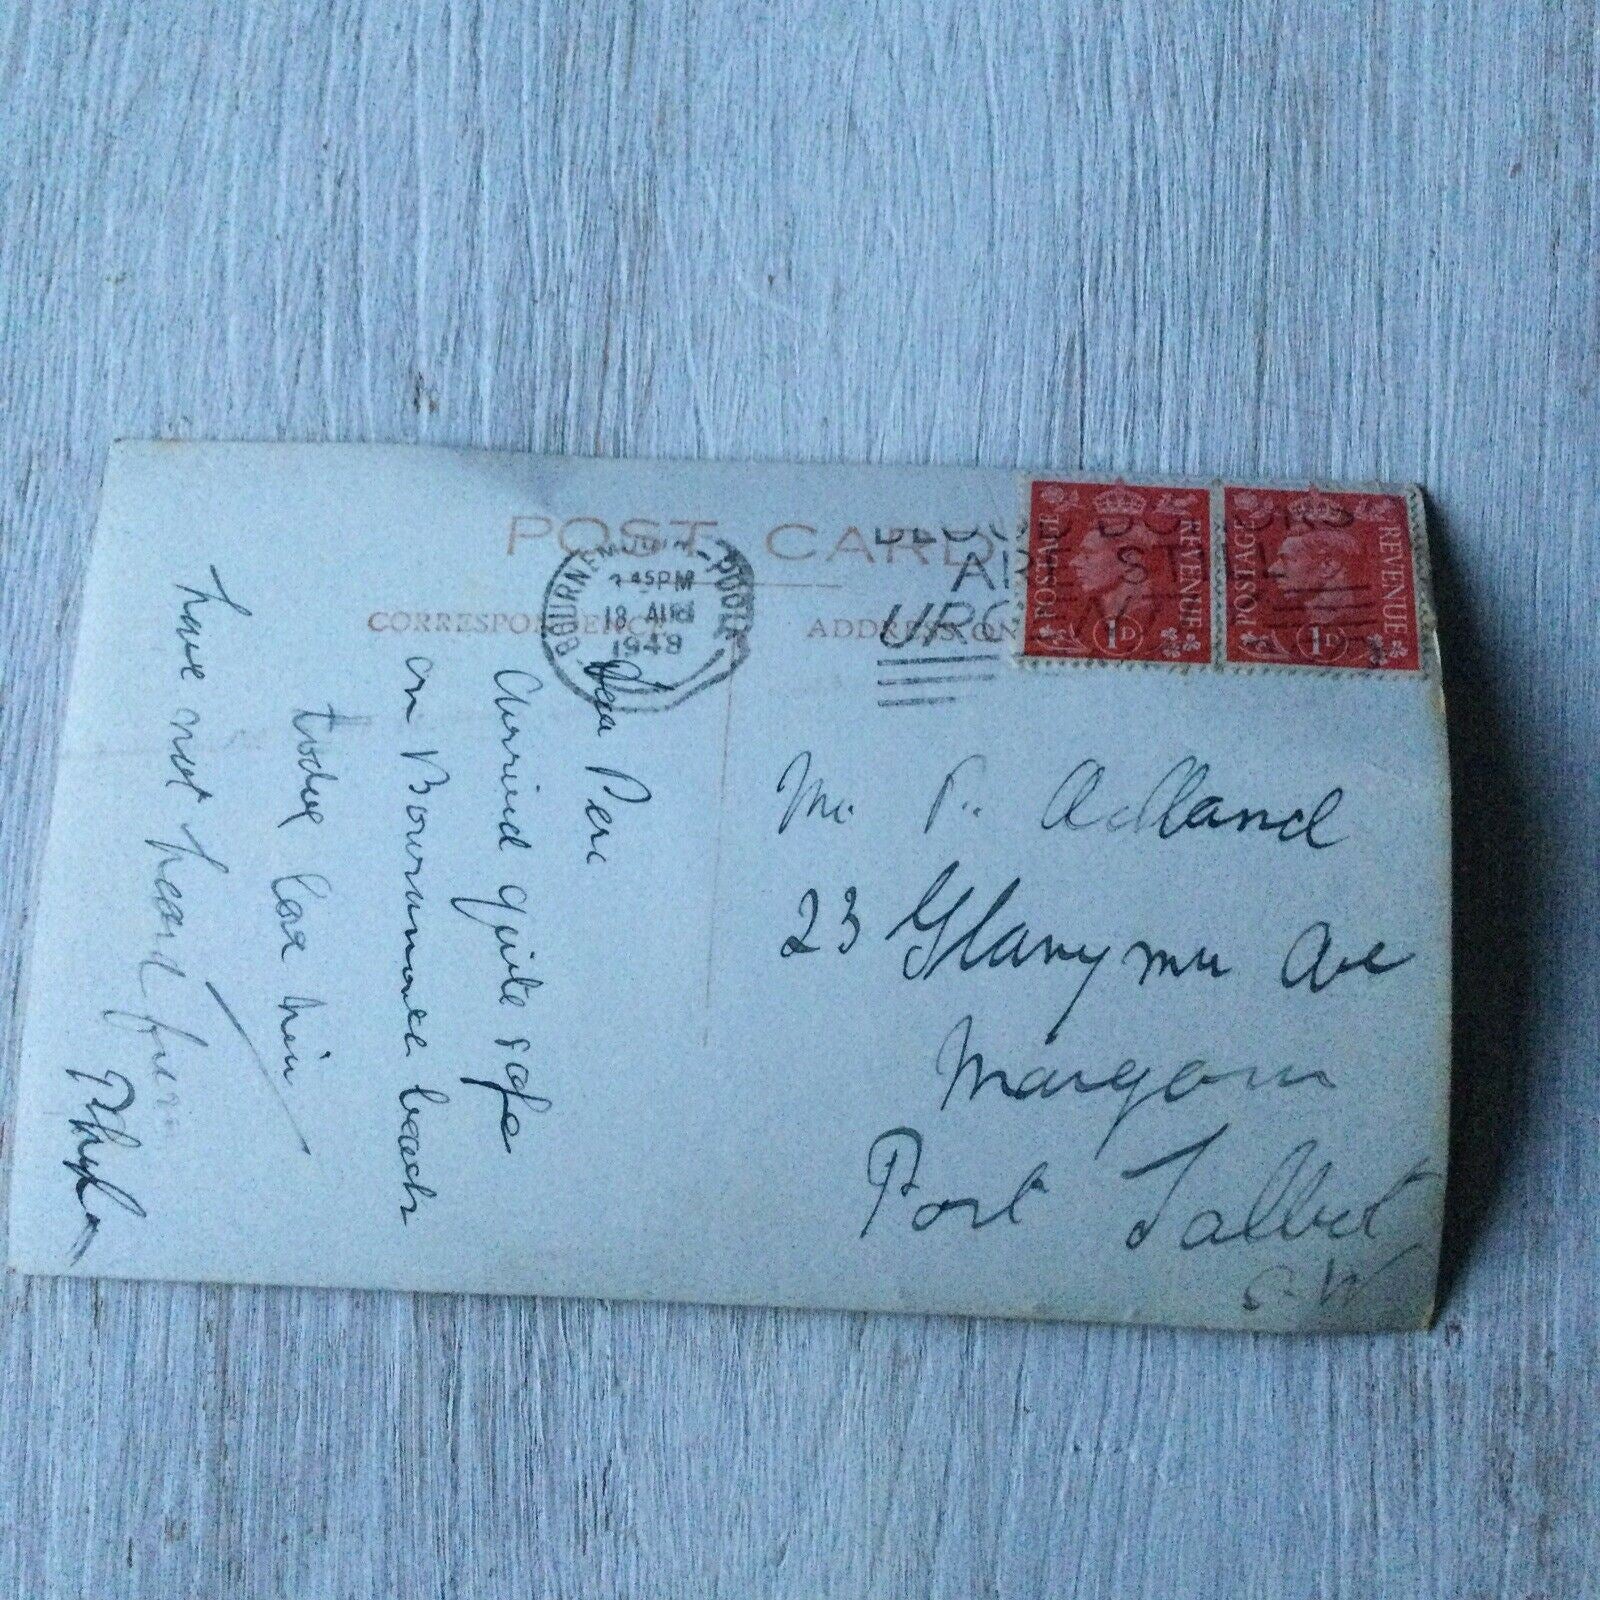 POST CARD
CORRESPONDENCE
ADDRESS ON
BOURNEMOUTH-POOLE
45PM
18 AUG
1948
BLOOD DONORS
ARE STILL
URGENTLY
POSTAGE REVENUE
1D
POSTAGE REVENUE
1D
Mr P. Adland
23 Glanymor Ave
Margam
Port Talbot
S. W
Dear Perc
Arrived quite safe
on Bournmouth beach
today
have not heard from